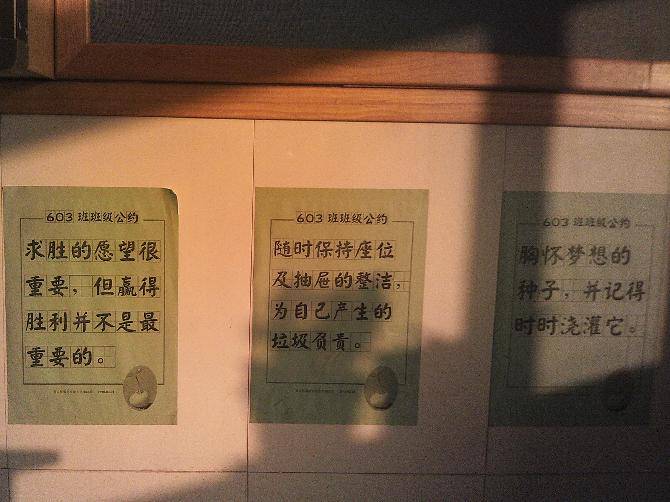 603 班班级公约
求胜的愿望很
重要，但赢得
胜利并不是最
重要的。
603 班班级公约
随时保持座位
及抽屉的整洁，
为自己产生的
垃圾负责。
603 班班级公约
胸怀梦想的
种子，并记得
时时浇灌它。